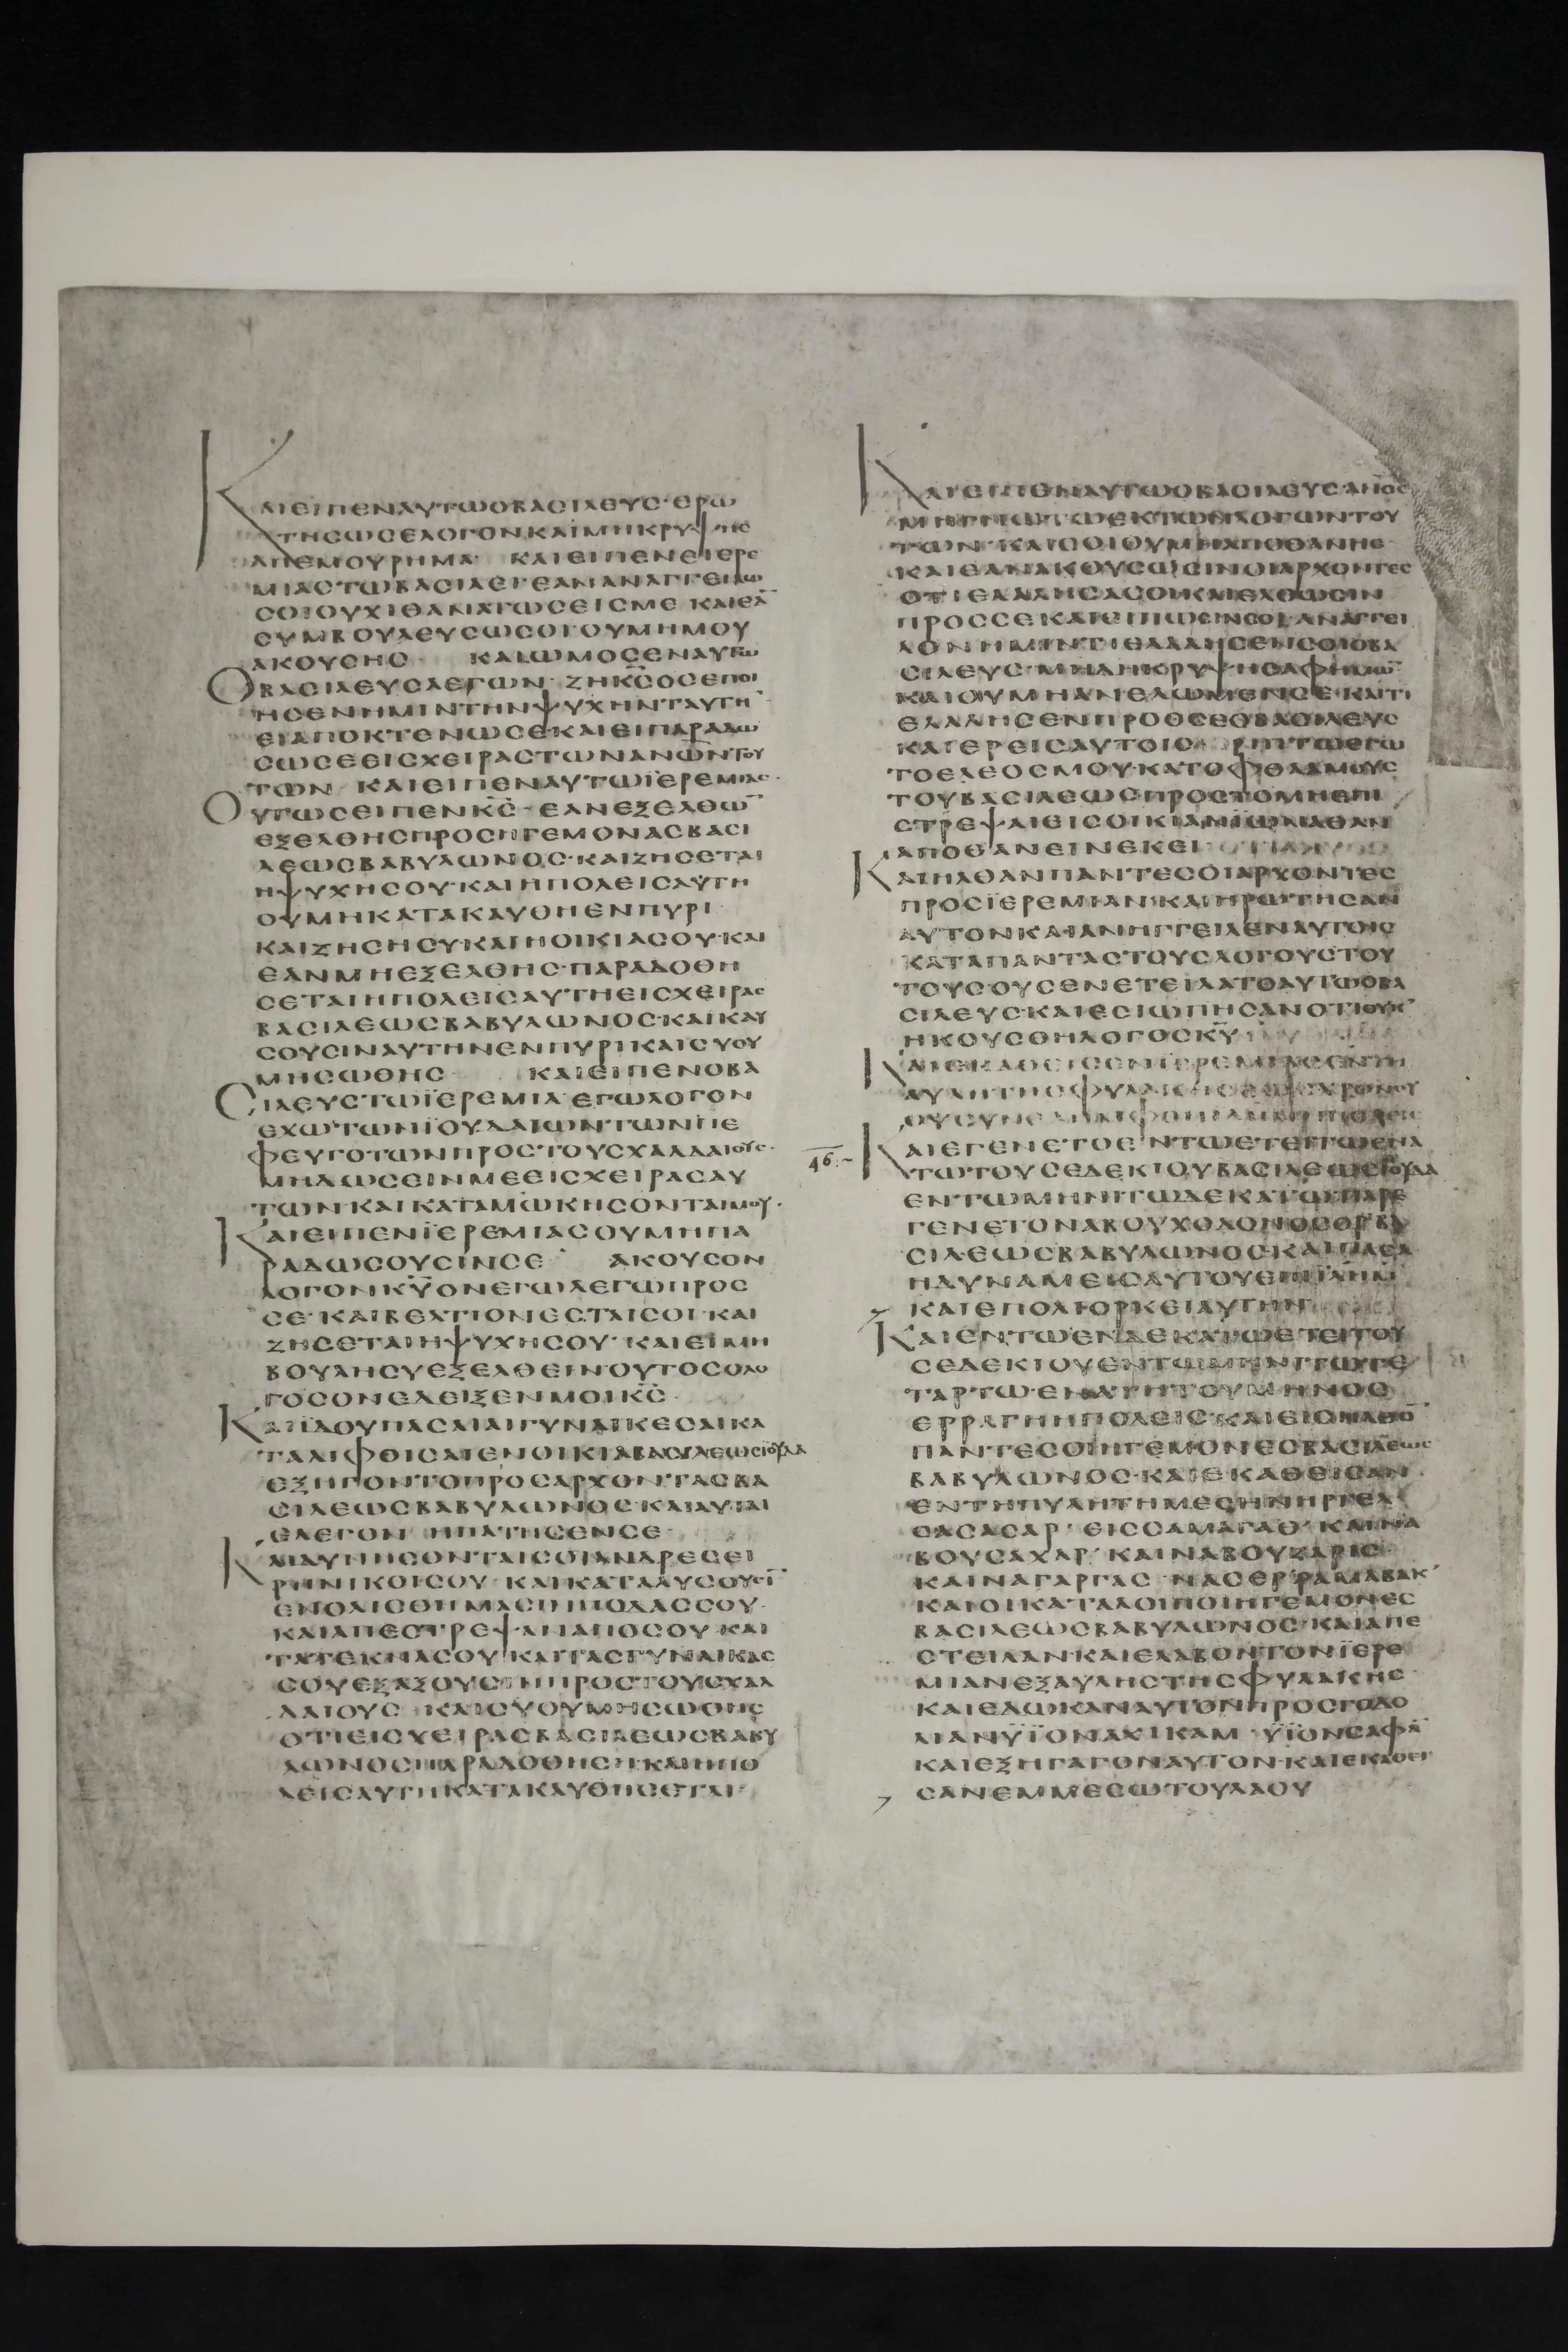 ΚΑΙΕΙΠΕΝΑΥΤΩΟΒΑΣΙΛΕΥΣ·ΕΡΩ
ΤΗΣΩΣΕΛΟΓΟΝΚΑΙΜΗΚΡΥΨΗΣ
ΑΠΕΜΟΥΡΗΜΑ ΚΑΙΕΙΠΕΝΕΙΕΡΕ
ΜΙΑΣΤΩΒΑΣΙΛΕΙ·ΕΑΝΑΝΑΓΓΕΙΛΩ
ΣΟΙΟΥΧΙΘΑΝΑΤΩΣΕΙΣΜΕ ΚΑΙΕΑ̅
ΣΥΜΒΟΥΛΕΥΣΩΣΟΙΟΥΜΗΜΟΥ
ΑΚΟΥΣΗΣ ΚΑΙΩΜΟΣΕΝΑΥΤΩ
ΟΒΑΣΙΛΕΥΣΛΕΓΩΝ·ΖΗΚ̅Σ̅ΟΣΕΠΟΙ
ΗΣΕΝΗΜΙΝΤΗΝΨΥΧΗΝΤΑΥΤΗ̅
ΕΙΑΠΟΚΤΕΝΩΣΕΚΑΙΕΙΠΑΡΑΔΩ
ΣΩΣΕΕΙΣΧΕΙΡΑΣΤΩΝΑΝΩ̅Ν̅ΤΟΥ
ΤΩΝ ΚΑΙΕΙΠΕΝΑΥΤΩΪΕΡΕΜΙΑΣ·
ΟΥΤΩΣΕΙΠΕΝΚ̅Σ̅·ΕΑΝΕΞΕΛΘΩ̅
ΕΞΕΛΘΗΣΠΡΟΣΗΓΕΜΟΝΑΣΒΑΣΙ
ΛΕΩΣΒΑΒΥΛΩΝΟΣ·ΚΑΙΖΗΣΕΤΑΙ
ΗΨΥΧΗΣΟΥ·ΚΑΙΗΠΟΛΕΙΣΑΥΤΗ
ΟΥΜΗΚΑΤΑΚΑΥΘΗΕΝΠΥΡΙ
ΚΑΙΖΗΣΗΣΥΚΑΙΗΟΙΚΙΑΣΟΥ·ΚΑΙ
ΕΑΝΜΗΕΞΕΛΘΗΣ·ΠΑΡΑΔΟΘΗ
ΣΕΤΑΙΗΠΟΛΕΙΣΑΥΤΗΕΙΣΧΕΙΡΑΣ
ΒΑΣΙΛΕΩΣΒΑΒΥΛΩΝΟΣ·ΚΑΙΚΑΥ
ΣΟΥΣΙΝΑΥΤΗΝΕΝΠΥΡΙΚΑΙΣΥΟΥ
ΜΗΣΩΘΗΣ ΚΑΙΕΙΠΕΝΟΒΑ
ΣΙΛΕΥΣΤΩΪΕΡΕΜΙΑ·ΕΓΩΛΟΓΟΝ
ΕΧΩΤΩΝΪΟΥΔΑΙΩΝΤΩΝΠΕ
ΦΕΥΓΟΤΩΝΠΡΟΣΤΟΥΣΧΑΛΔΑΙΟΥΣ·
ΜΗΔΩΣΕΙΝΜΕΕΙΣΧΕΙΡΑΣΑΥ
ΤΩΝΚΑΙΚΑΤΑΜΩΚΗΣΟΝΤΑΙΜΟΥ·
ΚΑΙΕΙΠΕΝΪΕΡΕΜΙΑΣΟΥΜΗΠΑ
ΡΑΔΩΣΟΥΣΙΝΣΕ ΑΚΟΥΣΟΝ
ΛΟΓΟΝΚ̅Υ̅ΟΝΕΓΩΛΕΓΩΠΡΟΣ
ΣΕ·ΚΑΙΒΕΛΤΙΟΝΕΣΤΑΙΣΟΙ·ΚΑΙ
ΖΗΣΕΤΑΙΗΨΥΧΗΣΟΥ·ΚΑΙΕΙΜΗ
ΒΟΥΛΗΣΥΕΞΕΛΘΕΙΝΟΥΤΟΣΟΛΟ
ΓΟΣΟΝΕΔΕΙΞΕΝΜΟΙΚ̅Σ̅
ΚΑΙΪΔΟΥΠΑΣΑΙΑΙΓΥΝΑΙΚΕΣΑΙΚΑ
ΤΑΛΙΦΘΙΣΑΙΕΝΟΙΚΙΑΒΑΣΙΛΕΩΣΙΟΥΔΑ
ΕΞΗΓΟΝΤΟΠΡΟΣΑΡΧΟΝΤΑΣΒΑ
ΣΙΛΕΩΣΒΑΒΥΛΩΝΟΣ·ΚΑΙΑΥΤΑΙ
ΕΛΕΓΟΝ ΗΠΑΤΗΣΕΝΣΕ
ΚΑΙΔΥΝΗΣΟΝΤΑΙΣΟΙΑΝΔΡΕΣΕΙ
ΡΗΝΙΚΟΙΣΟΥ·ΚΑΙΚΑΤΑΛΥΣΟΥΣΙ̅
ΕΝΟΛΙΣΘΗΜΑΣΙΝΠΟΔΑΣΣΟΥ·
ΚΑΙΑΠΕΣΤΡΕΨΑΝΑΠΟΣΟΥ·ΚΑΙ
ΤΑΤΕΚΝΑΣΟΥ·ΚΑΙΤΑΣΓΥΝΑΙΚΑΣ
ΣΟΥΕΞΑΞΟΥΣΙΝΠΡΟΣΤΟΥΣΧΑΛ
ΔΑΙΟΥΣ ΚΑΙΣΥΟΥΜΗΣΩΘΗΣ
ΟΤΙΕΙΣΧΕΙΡΑΣΒΑΣΙΛΕΩΣΒΑΒΥ
ΛΩΝΟΣΠΑΡΑΔΟΘΗΣΗ·ΚΑΙΗΠΟ
ΛΕΙΣΑΥΤΗΚΑΤΑΚΑΥΘΗΣΕΤΑΙ
ΚΑΙΕΙΠΕΝΑΥΤΩΟΒΑΣΙΛΕΥΣ·ΑΝ̅Ο̅Σ̅
ΜΗΓΝΩΤΩΕΚΤΩΝΛΟΓΩΝΤΟΥ
ΤΩΝ·ΚΑΙΣΟΙΟΥΜΗΑΠΟΘΑΝΗΣ
ΚΑΙΕΑΝΑΚΟΥΣΩΣΙΝΟΙΑΡΧΟΝΤΕΣ
ΟΤΙΕΛΑΛΗΣΑΣΟΙΚΑΙΕΛΘΩΣΙΝ
ΠΡΟΣΣΕΚΑΙΕΙΠΩΣΙΝΣΟΙ·ΑΝΑΓΓΕΙ
ΛΟΝΗΜΙΝΤΙΕΛΑΛΗΣΕΝΣΟΙΟΒΑ
ΣΙΛΕΥΣ·ΜΗΔΗΚΡΥΨΗΣΑΦΗΜΩ̅
ΚΑΙΟΥΜΗΑΝΕΛΩΜΕΝΣΕ·ΚΑΙΤΙ
ΕΛΑΛΗΣΕΝΠΡΟΣΣΕΟΒΑΣΙΛΕΥΣ
ΚΑΙΕΡΕΙΣΑΥΤΟΙΣ ΡΙΠΤΩΕΓΩ
ΤΟΕΛΕΟΣΜΟΥ·ΚΑΤΟΦΘΑΛΜΟΥΣ
ΤΟΥΒΑΣΙΛΕΩΣΠΡΟΣΤΟΜΗΕΠΙ
ΣΤΡΕΨΑΙΕΙΣΟΙΚΙΑΝΪΩΝΑΘΑΝ
ΑΠΟΘΑΝΕΙΝΕΚΕΙ
ΚΑΙΗΛΘΑΝΠΑΝΤΕΣΟΙΑΡΧΟΝΤΕΣ
ΠΡΟΣΪΕΡΕΜΙΑΝ·ΚΑΙΗΡΩΤΗΣΑΝ
ΑΥΤΟΝΚΑΙΑΝΗΓΓΕΙΛΕΝΑΥΤΟΙΣ
ΚΑΤΑΠΑΝΤΑΣΤΟΥΣΛΟΓΟΥΣΤΟΥ
ΤΟΥΣΟΥΣΕΝΕΤΕΙΛΑΤΟΑΥΤΩΟΒΑ
ΣΙΛΕΥΣ·ΚΑΙΕΣΙΩΠΗΣΑΝΟΤΙΟΥΚ’
ΗΚΟΥΣΘΗΛΟΓΟΣΚ̅Υ̅
ΚΑΙΕΚΑΘΕΙΣΕΝΪΕΡΕΜΙΑΣΕΝΤΗ
ΑΥΛΗΤΗΣΦΥΛΑΚΗΣΕΩΣΧΡΟΝΟΥ
ΟΥΣΥΝΕΛΗΜΦΘΗΪΛΗΜΗΠΟΛΕΙΣ
46.- ΚΑΙΕΓΕΝΕΤΟΕΝΤΩΕΤΕΙΤΩΕΝΑ
ΤΩΤΟΥΣΕΔΕΚΙΟΥΒΑΣΙΛΕΩΣΪΟΥΔΑ
ΕΝΤΩΜΗΝΙΤΩΔΕΚΑΤΩΠΑΡΕ
ΓΕΝΕΤΟΝΑΒΟΥΧΟΔΟΝΟΣΟΡΒΑ
ΣΙΛΕΩΣΒΑΒΥΛΩΝΟΣ·ΚΑΙΠΑΣΑ
ΗΔΥΝΑΜΕΙΣΑΥΤΟΥΕΠΙΪΛΗΜ
ΚΑΙΕΠΟΛΙΟΡΚΕΙΑΥΤΗΝ
ΚΑΙΕΝΤΩΕΝΔΕΚΑΤΩΕΤΕΙΤΟΥ
ΣΕΔΕΚΙΟΥΕΝΤΩΜΗΝΙΤΩΤΕ
ΤΑΡΤΩ·ΕΝΑΤΗΤΟΥΜΗΝΟΣ
ΕΡΡΑΓΗΗΠΟΛΕΙΣ·ΚΑΙΕΙΣΗΛΘΟ̅
ΠΑΝΤΕΣΟΙΗΓΕΜΟΝΕΣΒΑΣΙΛΕΩΣ
ΒΑΒΥΛΩΝΟΣ·ΚΑΙΕΚΑΘΕΙΣΑΝ
ΕΝΤΗΠΥΛΗΤΗΜΕΣΗΝΗΡΓΕΛ
ΣΑΣΑΣΑΡ’ΕΙΣΣΑΜΑΓΑΘ’ΚΑΙΝΑ
ΒΟΥΣΑΧΑΡ’ΚΑΙΝΑΒΟΥΖΑΡΙΣ
ΚΑΙΝΑΓΑΡΓΑΣ·ΝΑΣΕΡ’ΡΑΒΑΜΑΚ’
ΚΑΙΟΙΚΑΤΑΛΟΙΠΟΙΗΓΕΜΟΝΕΣ
ΒΑΣΙΛΕΩΣΒΑΒΥΛΩΝΟΣ·ΚΑΙΑΠΕ
ΣΤΕΙΛΑΝΚΑΙΕΛΑΒΟΝΤΟΝΪΕΡΕ
ΜΙΑΝΕΞΑΥΛΗΣΤΗΣΦΥΛΑΚΗΣ·
ΚΑΙΕΔΩΚΑΝΑΥΤΟΝΠΡΟΣΓΟΔΟ
ΛΙΑΝΫΪΟΝΑΧΙΚΑΜ·ΫΪΟΝΣΑΦΑ̅
ΚΑΙΕΞΗΓΑΓΟΝΑΥΤΟΝ·ΚΑΙΕΚΑΘΕΙ
ΣΑΝΕΜΜΕΣΩΤΟΥΛΑΟΥ